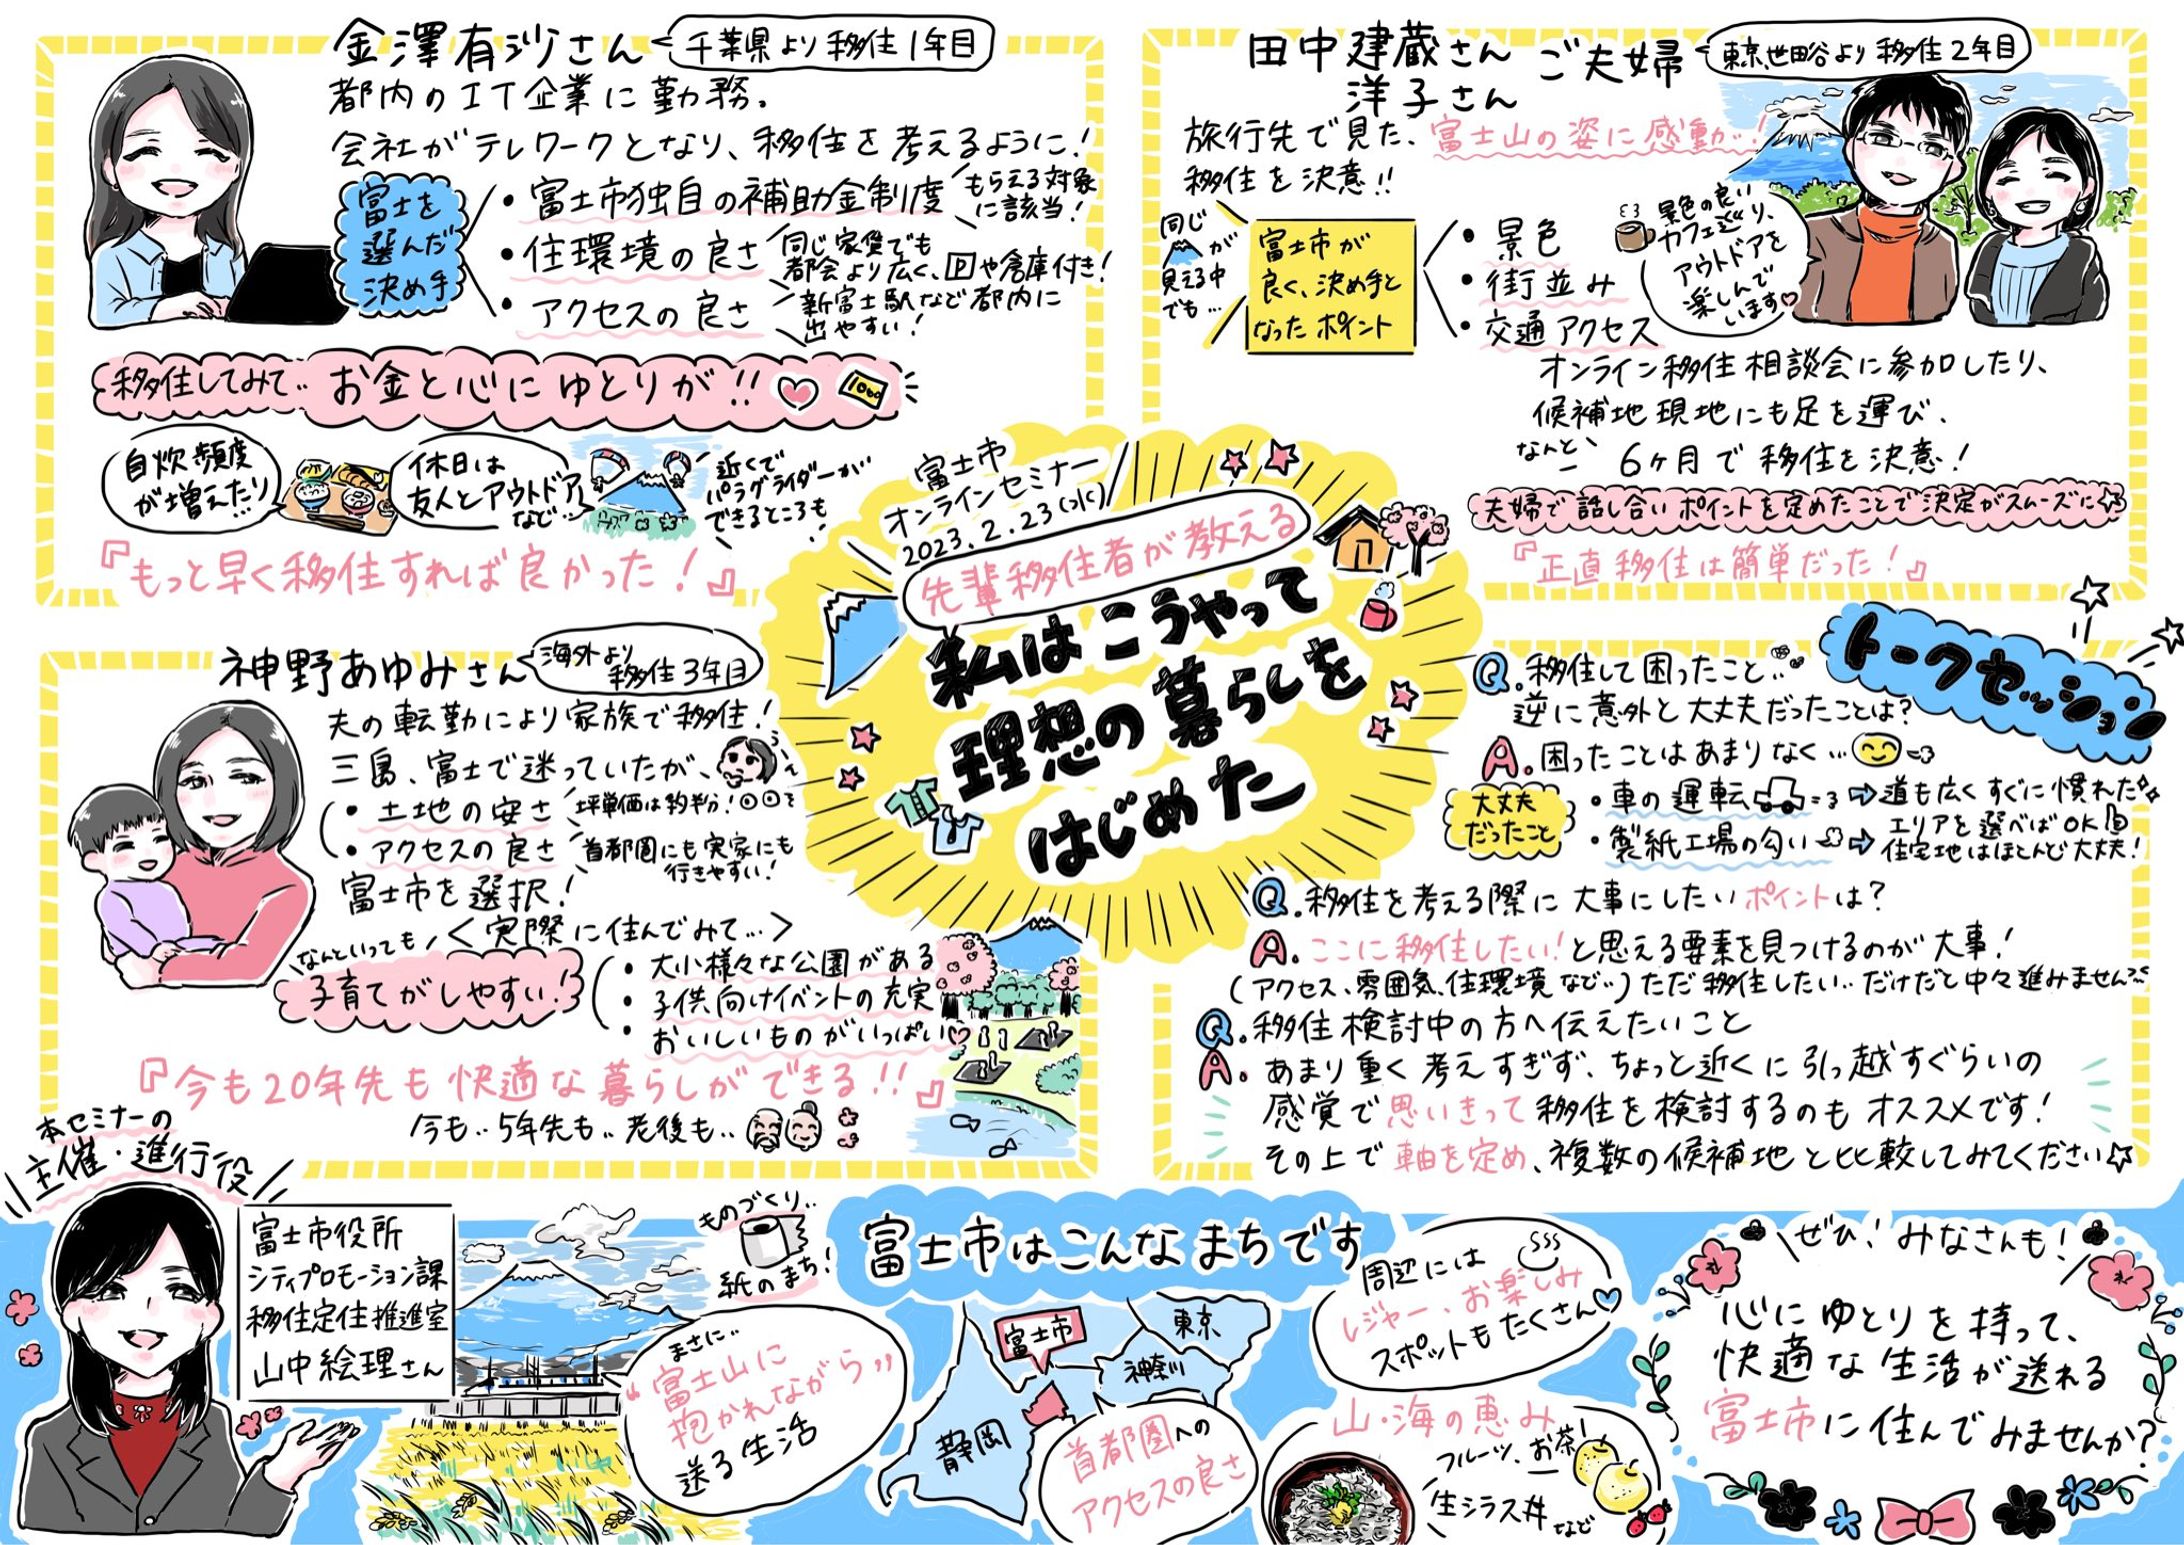 金澤有沙さん
千葉県より移住1年目
都内のIT企業に勤務。
会社がテレワークとなり、移住を考えるように！
富士を
選んだ
決め手
・富士市独自の補助金制度
もらえる対象
に該当！
・住環境の良さ
同じ家賃でも
都会より広く、Pや倉庫付き！
・アクセスの良さ
新富士駅など都内に
出やすい！
移住してみて‥お金と心にゆとりが!!
1000
自炊頻度
が増えたり…
休日は
友人とアウトドア
など…
近くで
パラグライダーが
できるところも！
『もっと早く移住すれば良かった！』
田中建蔵さん
洋子さん
ご夫婦
東京、世田谷より移住2年目
旅行先で見た、富士山の姿に感動…！
移住を決意!!
同じ
が
見える中
でも…
富士市が
良く、決め手と
なったポイント
・景色
・街並み
・交通アクセス
景色の良い
カフェ巡り、
アウトドアを
楽しんで
います♡
オンライン移住相談会に参加したり、
候補地現地にも足を運び、
なんと
6ヶ月で移住を決意！
夫婦で話し合いポイントを定めたことで決定がスムーズに☆
『正直移住は簡単だった！』
富士市
オンラインセミナー
2023.2.23(水)
先輩移住者が教える
私はこうやって
理想の暮らしを
はじめた
神野あゆみさん
海外より
移住3年目
夫の転勤により家族で移住！
三島、富士で迷っていたが、
・土地の安さ
坪単価は約半分！
・アクセスの良さ
首都圏にも実家にも
行きやすい！
富士市を選択！
＜実際に住んでみて…＞
なんといっても
子育てがしやすい！
・大小様々な公園がある
・子供向けイベントの充実
・おいしいものがいっぱい♡
『今も20年先も快適な暮らしができる!!』
今も‥5年先も‥老後も‥
トークセッション
Q.移住して困ったこと‥
逆に意外と大丈夫だったことは？
A.困ったことはあまりなく…
大丈夫
だったこと
・車の運転
⇨道も広くすぐに慣れた
・製紙工場の匂い
⇨エリアを選べばOK
住宅地はほとんど大丈夫！
Q.移住を考える際に大事にしたいポイントは？
A.ここに移住したい！と思える要素を見つけるのが大事！
(アクセス、雰囲気、住環境など‥)ただ移住したい‥だけだと中々進みません
Q.移住検討中の方へ伝えたいこと
A.あまり重く考えすぎず、ちょっと近くに引っ越すぐらいの
感覚で思いきって移住を検討するのもオススメです！
その上で軸を定め、複数の候補地と比較してみてください☆
本セミナーの
主催・進行役
富士市役所
シティプロモーション課
移住定住推進室
山中絵理さん
ものづくり‥
紙のまち！
まさに‥
"富士山に
抱かれながら"
送る生活
富士市はこんなまちです
富士市
東京
神奈川
静岡
首都圏への
アクセスの良さ
周辺には
レジャー、お楽しみ
スポットもたくさん♡
山・海の恵み
フルーツ、お茶
生シラス丼
など
ぜひ！みなさんも！
心にゆとりを持って、
快適な生活が送れる
富士市に住んでみませんか？